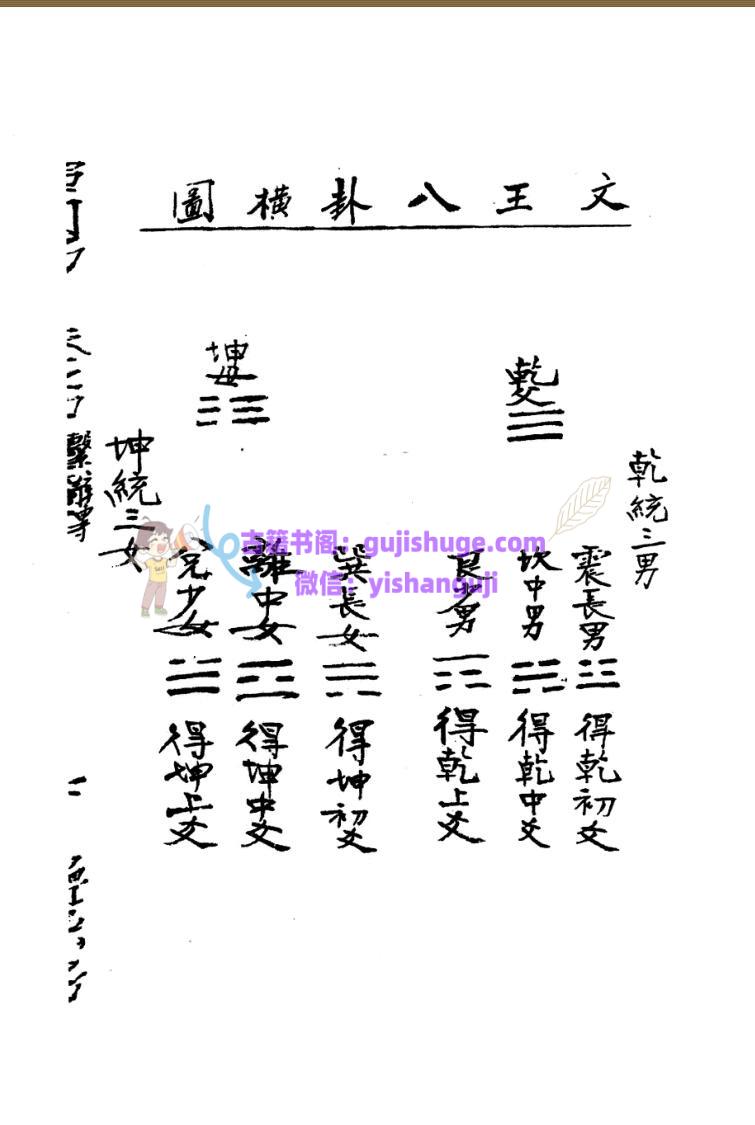 文王八卦橫圖
乾父
坤母
乾統三男
震長男
坎中男
艮少男
巽長女
離中女
兌少女
坤統三女
得乾初爻
得乾中爻
得乾上爻
得坤初爻
得坤中爻
得坤上爻
繫辭專
古籍书阁：gujishuge.com
微信：yishanguji